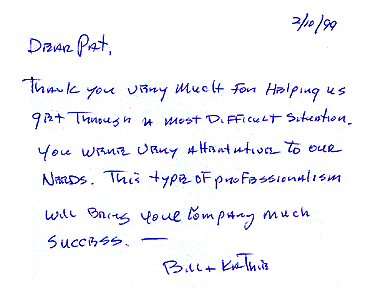 2/10/99
Dear Pat,
Thank you very much for helping us
get through a most difficult situation.
You were very attentive to our
needs. This type of professionalism
will bring your company much
success. —
Bill + Kathie